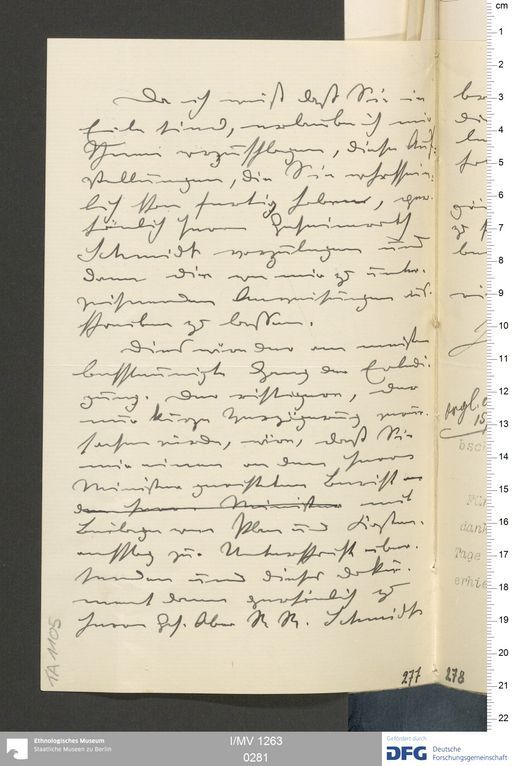 Da ich weiß daß Sie in
Eile sind, erlaube ich mir
Ihnen vorzuschlagen, diese Auf-
stellungen, die Sie wahrschein-
lich schon fertig haben, per-
sönlich Herrn Geheimrat
Schmidt vorzulegen und
dann die von mir zu unter-
zeichnenden Anweisungen aus-
schreiben zu lassen.
Dies wäre der am meisten
beschleunigte Gang der Erledi-
gung. Der richtigere, der
nur kurze Verzögerung verur-
sachen würde, wäre, daß Sie
mir einen an den Herrn
Minister gerichteten Bericht
dem Herrn Minister mit
Beilagen von Plan und Kosten-
anschlag zur Unterschrift über-
senden und dieses Doku-
ment dann persönlich zu
Herrn Geh. Ober R. R. Schmidt
277
278
vergl.
TA 1105
cm
1
2
3
4
5
6
7
8
9
10
11
12
13
14
15
16
17
18
19
20
21
22
Ethnologisches Museum
Staatliche Museen zu Berlin
I/MV 1263
0281
Gefördert durch
DFG Deutsche
Forschungsgemeinschaft